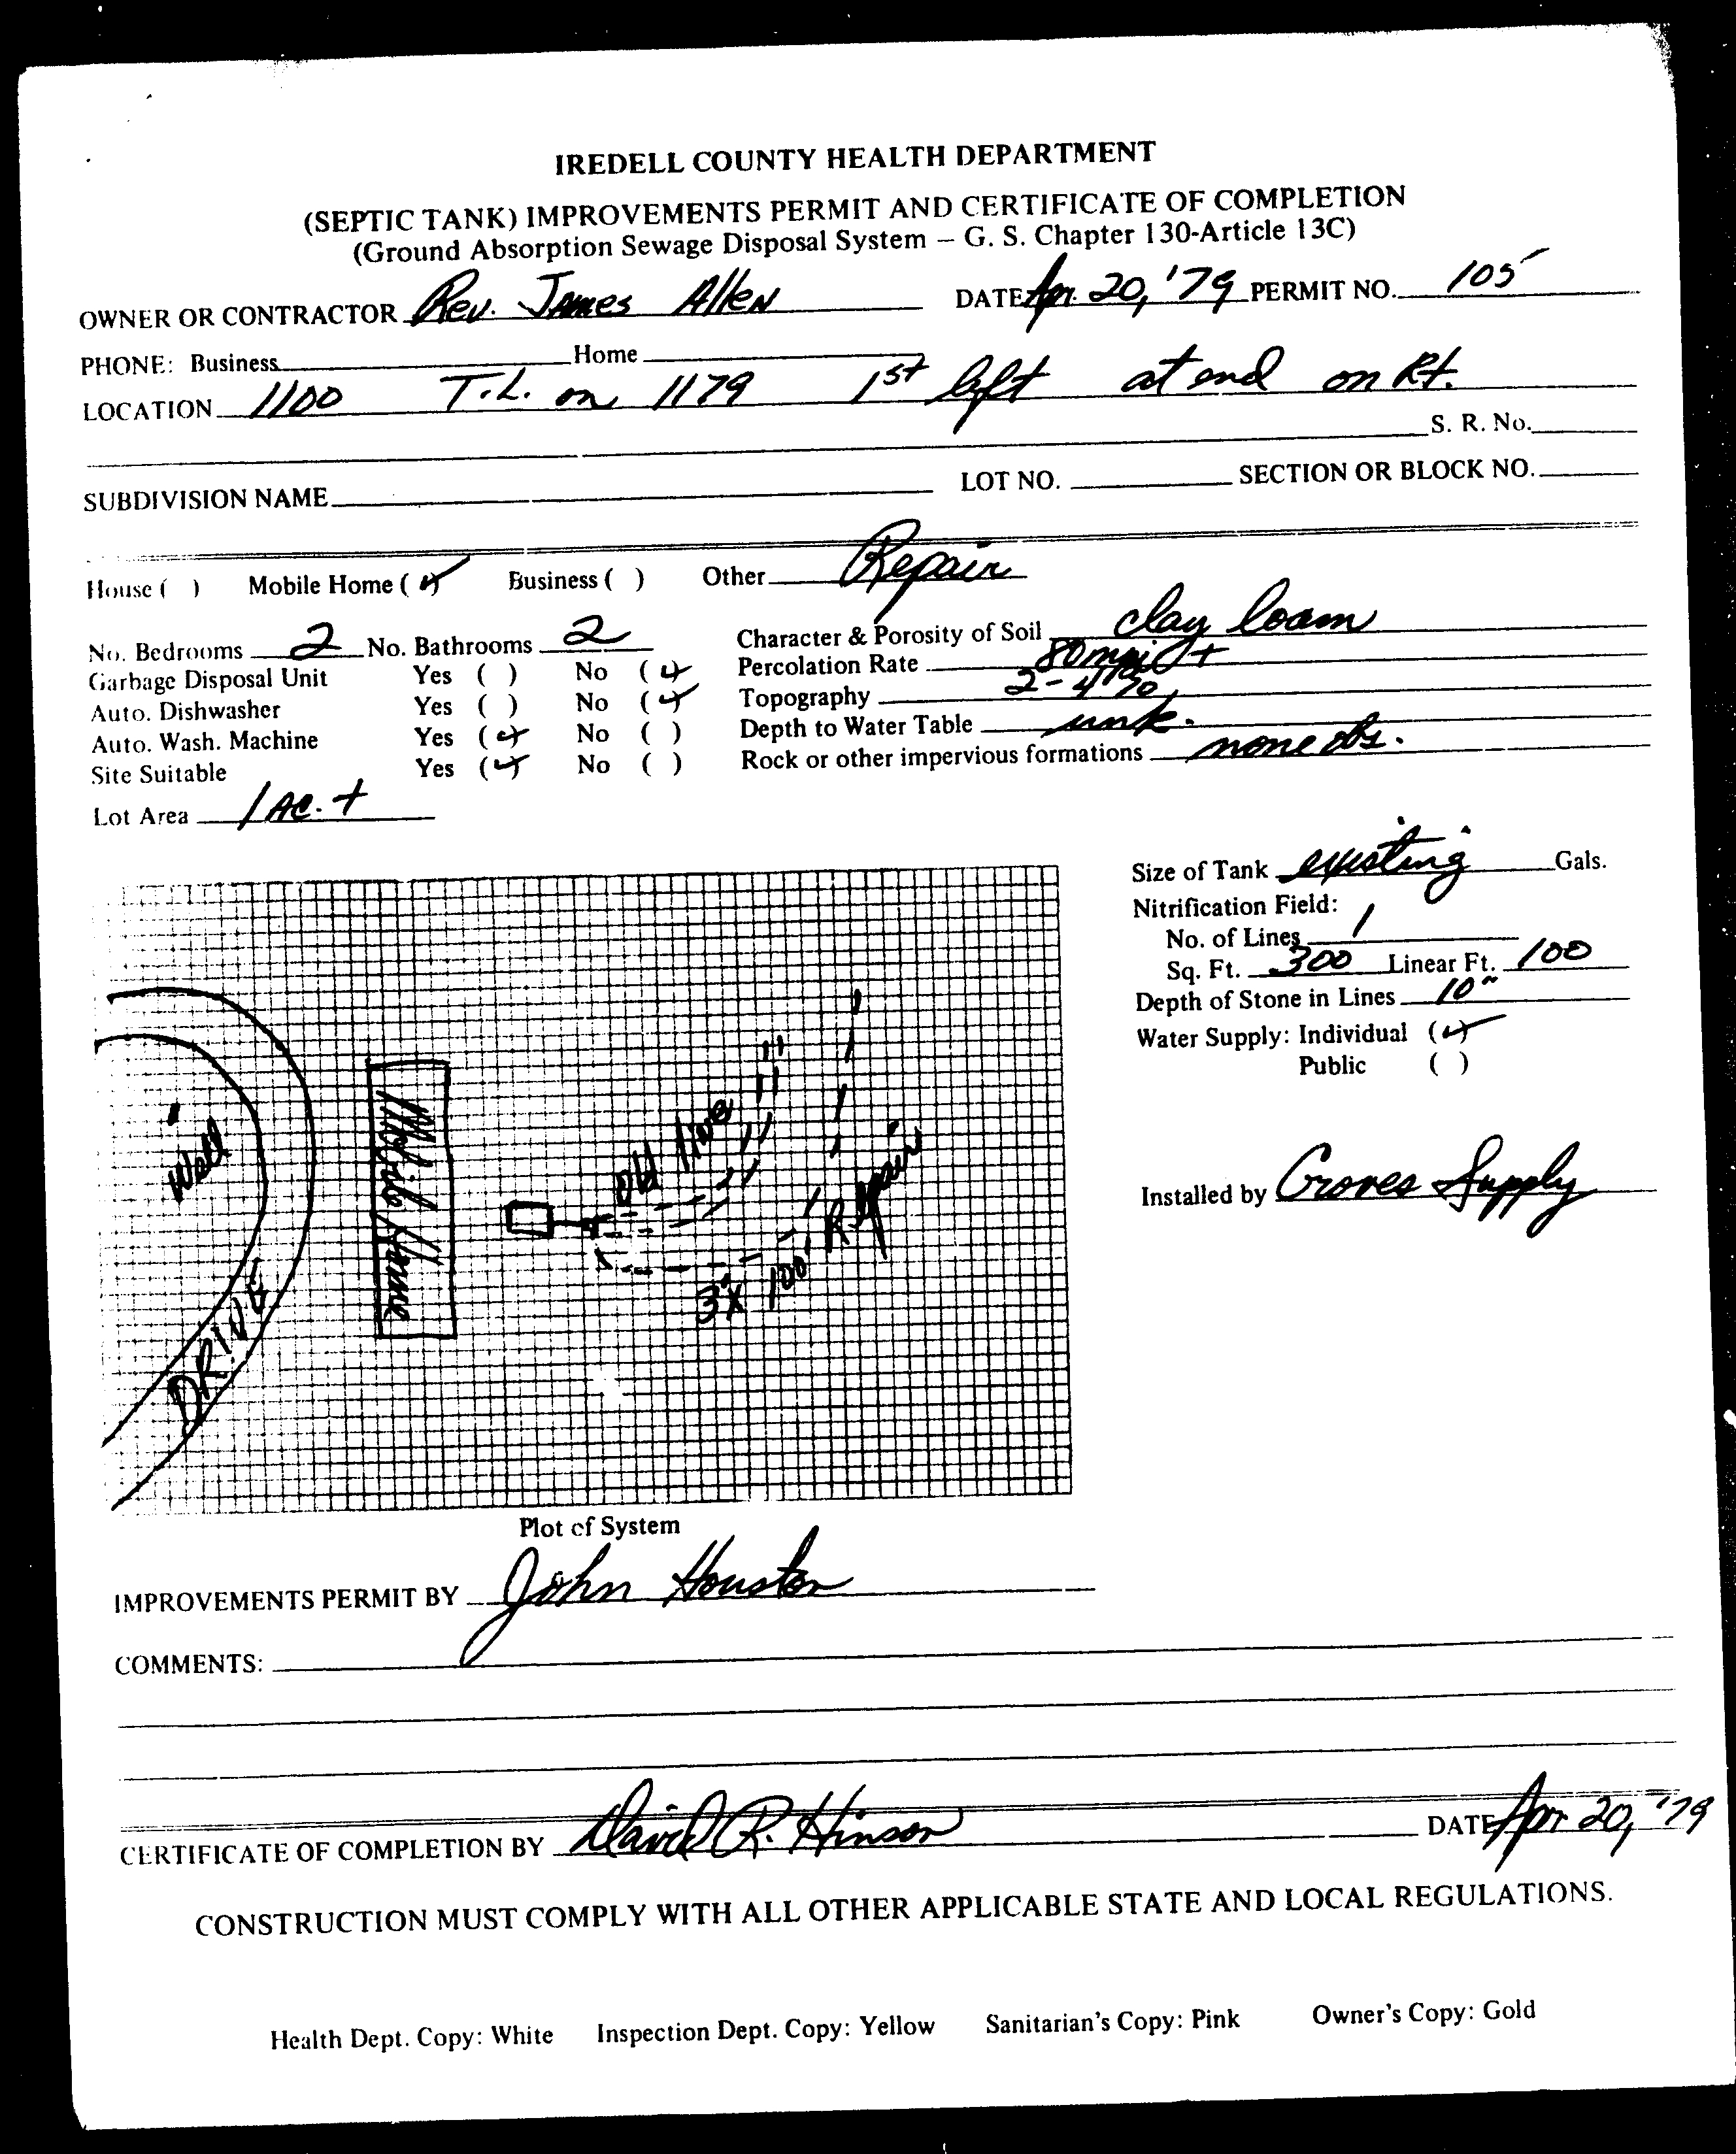 IREDELL COUNTY HEALTH DEPARTMENT
(SEPTIC TANK) IMPROVEMENTS PERMIT AND CERTIFICATE OF COMPLETION
(Ground Absorption Sewage Disposal System – G. S. Chapter 130-Article 13C)
OWNER OR CONTRACTOR Rev. James Allen DATE Apr. 20, '79 PERMIT NO. 105
PHONE: Business Home
LOCATION 1100 T.L. on 1179 1st left at end on Rt.
S. R. No.
SUBDIVISION NAME LOT NO. SECTION OR BLOCK NO.
House ( ) Mobile Home (✓) Business ( ) Other Repair
No. Bedrooms 2 No. Bathrooms 2 Character & Porosity of Soil clay loam
Garbage Disposal Unit Yes ( ) No (✓) Percolation Rate 80 mpi +
Auto. Dishwasher Yes ( ) No (✓) Topography 2-4%
Auto. Wash. Machine Yes (✓) No ( ) Depth to Water Table unk.
Site Suitable Yes (✓) No ( ) Rock or other impervious formations none obs.
Lot Area 1 Ac. +
Size of Tank existing Gals.
Nitrification Field:
No. of Lines 1
Sq. Ft. 300 Linear Ft. 100
Depth of Stone in Lines 10"
Water Supply: Individual (✓)
Public ( )
Installed by Groves Supply
Well
DRIVE
Mobile Home
old line
3' x 100' Repair
Plot of System
IMPROVEMENTS PERMIT BY John Houston
COMMENTS:
CERTIFICATE OF COMPLETION BY David R. Hinson DATE Apr 20, '79
CONSTRUCTION MUST COMPLY WITH ALL OTHER APPLICABLE STATE AND LOCAL REGULATIONS.
Health Dept. Copy: White Inspection Dept. Copy: Yellow Sanitarian's Copy: Pink Owner's Copy: Gold